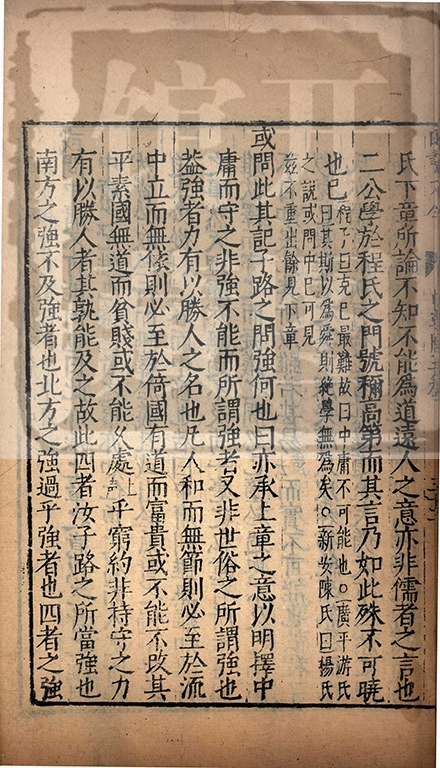 氏下章所論不知不能爲道遠人之意亦非儒者之言也
二公學於程氏之門號稱高第而其言乃如此殊不可曉
也已
程子曰克已最難故曰中庸不可能也○廣平游氏
曰其斯以爲舜則絶學無爲矣○新安陳氏曰楊氏
之說或問中已可見
兹不重出餘見下章
或問此其記子路之問強何也曰亦承上章之意以明擇中
庸而守之非強不能而所謂強者又非世俗之所謂強也
葢強者力有以勝人之名也凡人和而無節則必至於流
中立而無倚則必至於倚國有道而富貴或不能不改其
平素國無道而貧賤或不能久處乎窮約非持守之力
有以勝人者其孰能及之故此四者汝子路之所當強也
南方之強不及強者也北方之強過乎強者也四者之強